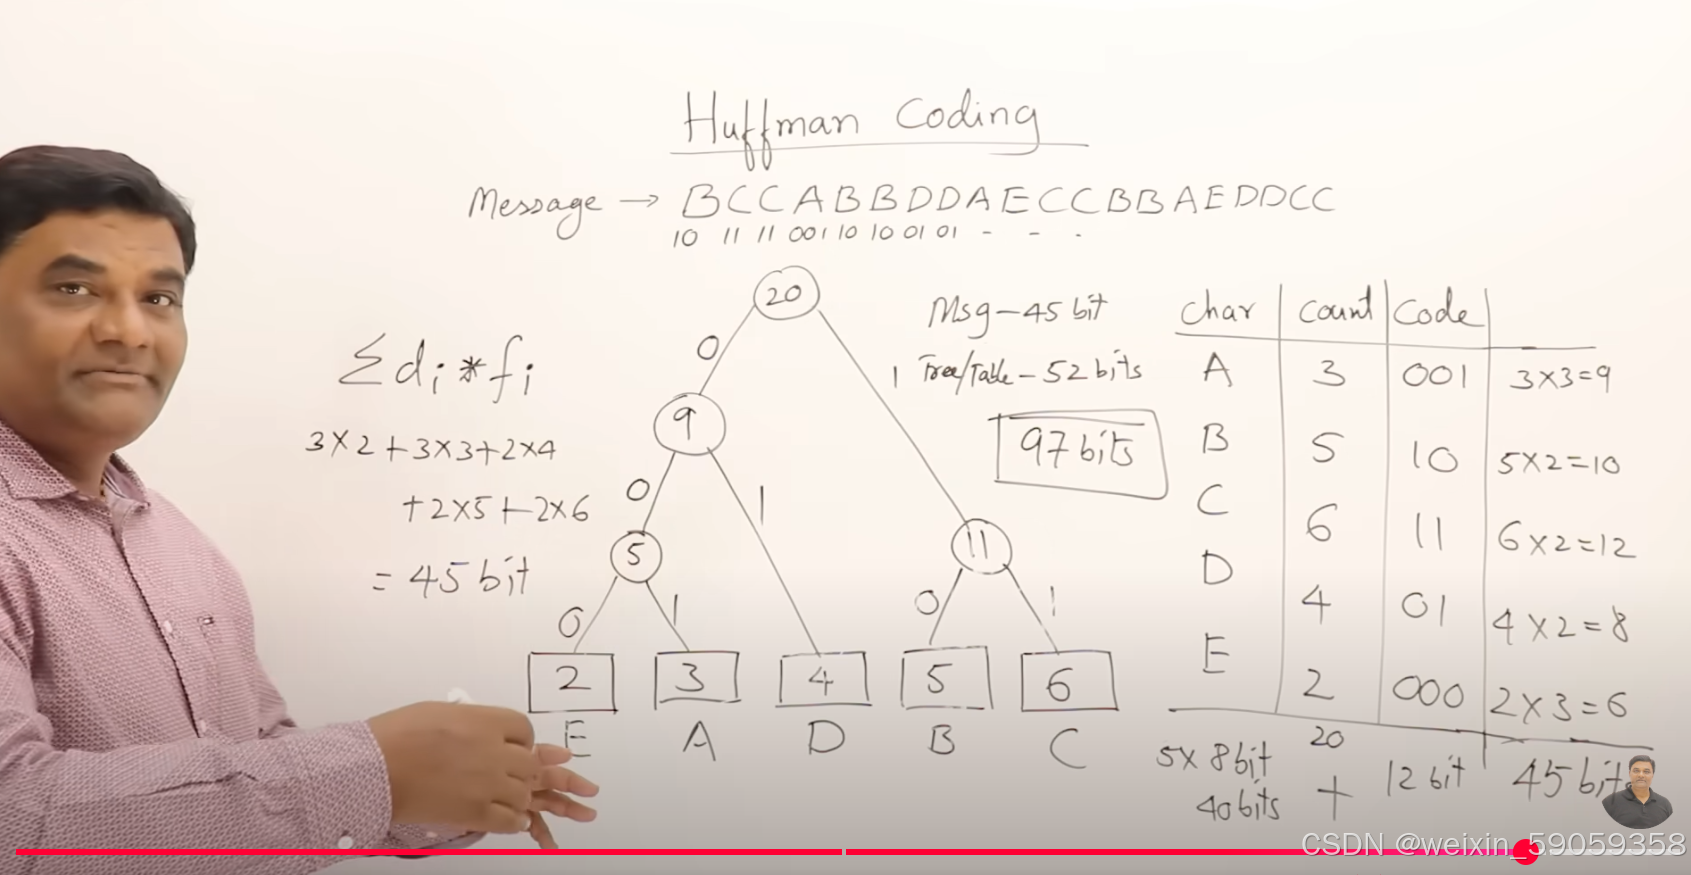 Huffman Coding
Message → BCCABBDDAECCBBAEDDCC
10 11 11 001 10 10 01 01 - - -
Σdi*fi
3×2+3×3+2×4
+2×5+2×6
= 45 bit
20
0
1
9
0
1
5
11
0
1
0
1
2 3 4 5 6
E A D B C
Msg - 45 bit
Tree/Table - 52 bits
97 bits
Char Count Code
A 3 001 3×3=9
B 5 10 5×2=10
C 6 11 6×2=12
D 4 01 4×2=8
E 2 000 2×3=6
20
5×8bit + 12 bit 45 bits
40bits
CSDN @weixin_59059358